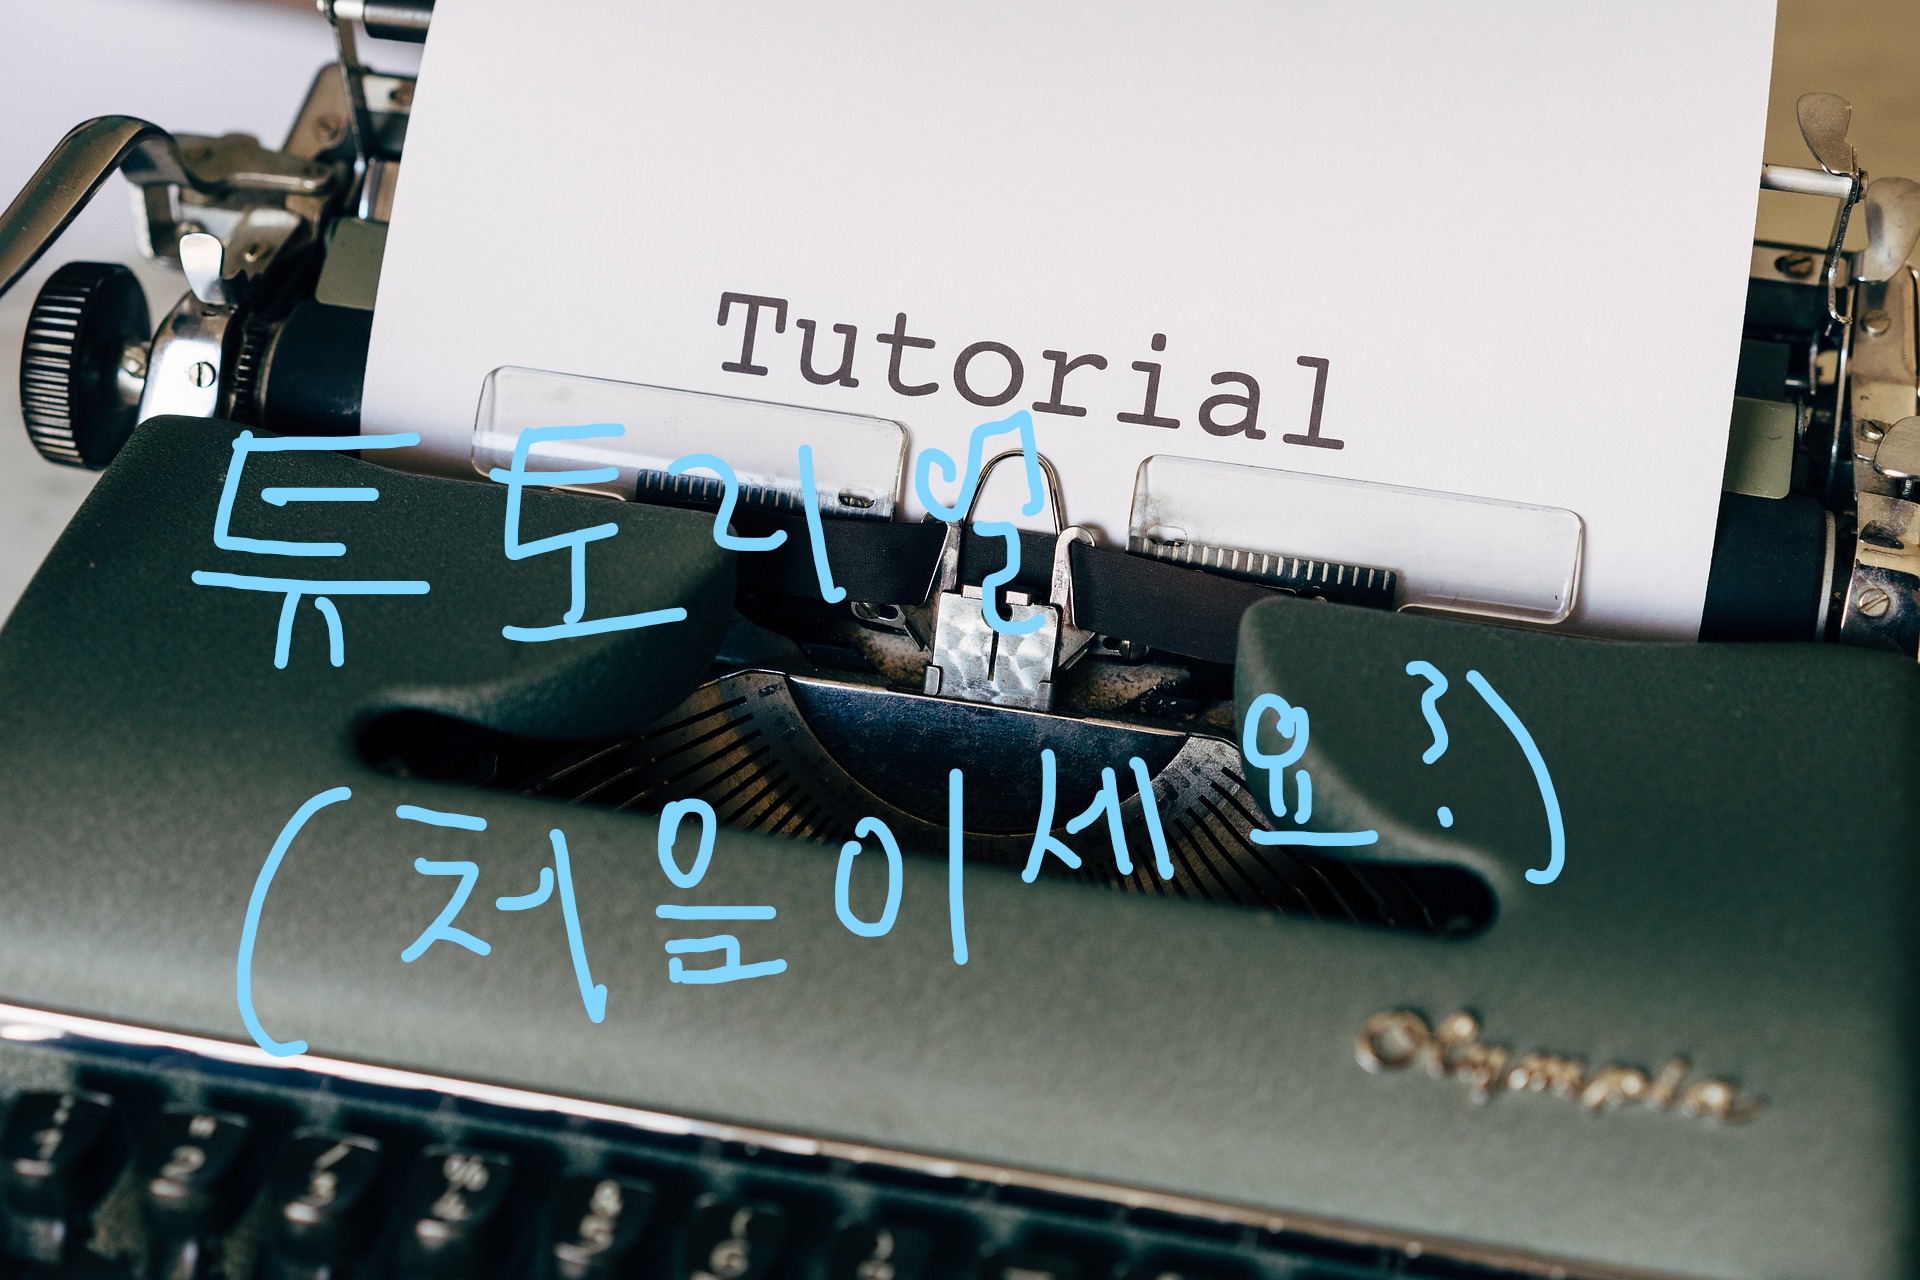 Tutorial
튜토리얼
(처음이세요?)
Olympia